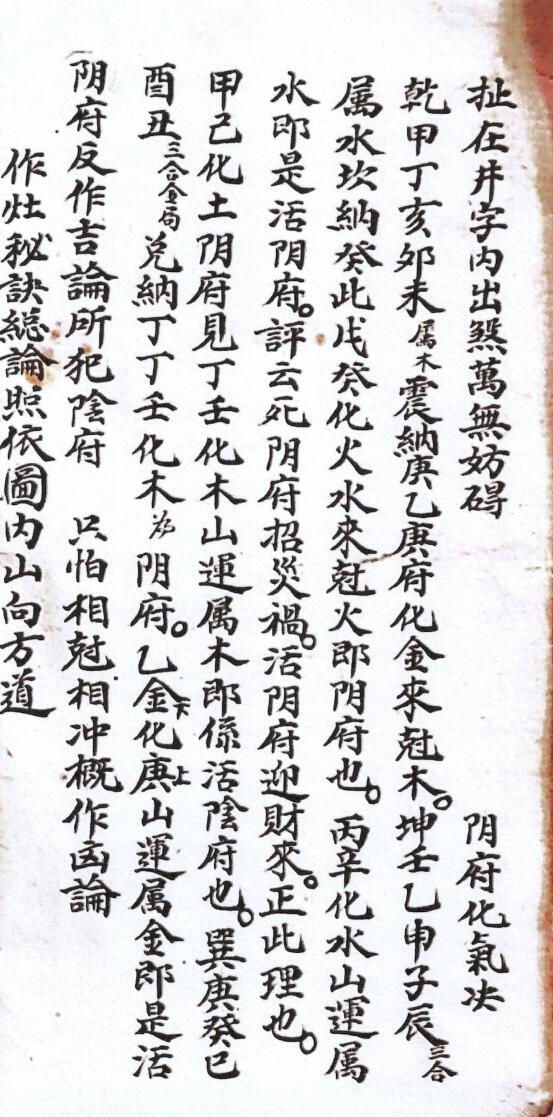 扯在井字内出煞萬無妨碍　阴府化氣决
乾甲丁亥卯未属木震納庚乙庚府化金來尅木。坤壬乙申子辰三合
属水坎納癸此戊癸化火水來尅火即阴府也。丙辛化水山運属
水即是活阴府。評云死阴府招災禍。活阴府迎財來。正此理也。
甲己化土阴府見丁壬化木山運属木即係活陰府也。巽庚癸巳
酉丑三合金局兑納丁丁壬化木為阴府。乙金下化庚上山運属金即是活
阴府反作吉論所犯陰府　只怕相尅相冲概作凶論
作灶秘訣総論照依圖内山向方道